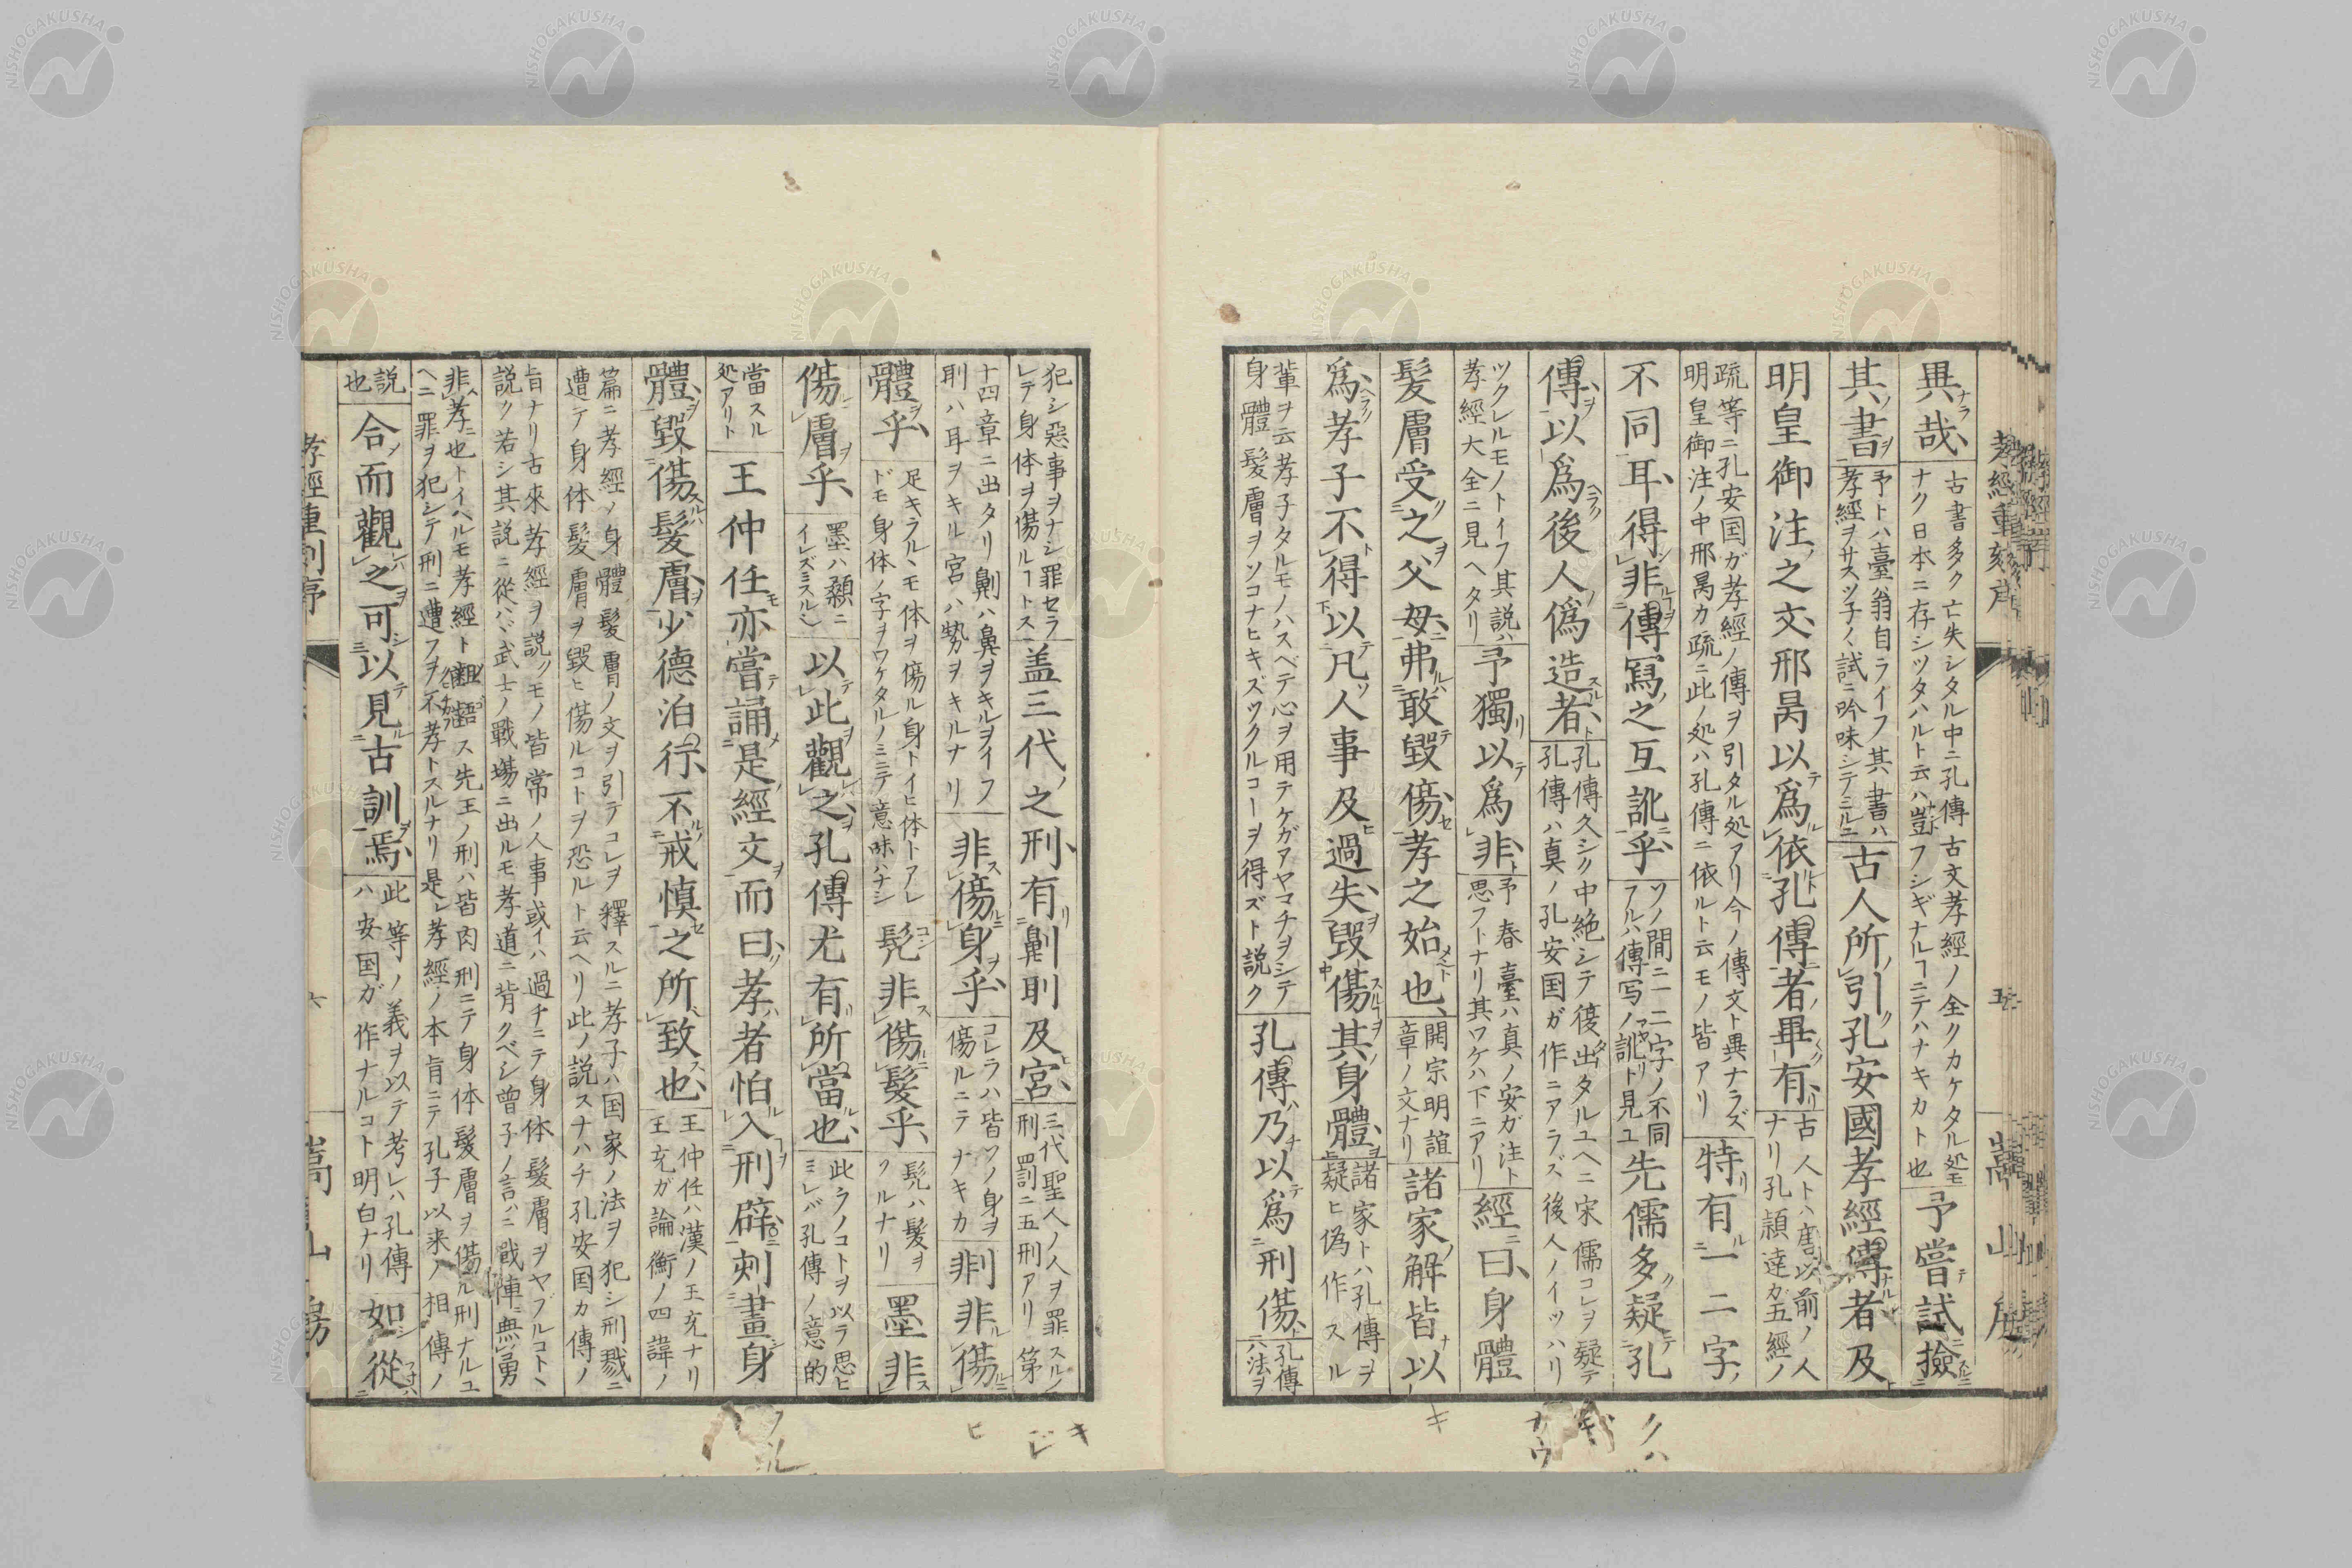 異哉 古書多ク亡失シタル中ニ孔傳古文孝經ノ全クカケタル処モ
ナク日本ニ存シツタハルト云ハ豈フシギナルヿニテハナキカト也 予嘗試撿
其書 予トハ臺翁自ライフ其書ハ
孝經ヲサスツ子〱試ニ吟味シテミルニ 古人所引孔安國孝經傳者及
明皇御注之文邢昺以爲依孔傳者畢有 古人トハ唐以前ノ人
ナリ孔頴達カ五經ノ
疏等ニ孔安国ガ孝經ノ傳ヲ引タル処アリ今ノ傳文ト異ナラズ
明皇御注ノ中邢昺カ疏ニ此ノ処ハ孔傳ニ依ルト云モノ皆アリ 特有一二字
不同耳得非傳寫之互訛乎 ソノ間ニ一二字ノ不同
アルハ傳写ノ訛リト見ユ 先儒多疑孔
傳以爲後人僞造者 孔傳久シク中絶シテ後出タルユヘニ宋儒コレヲ疑テ
孔傳ハ真ノ孔安国ガ作ニアラズ後人ノイツハリ
ツクレルモノトイフ其説ハ
孝經大全ニ見ヘタリ 予獨以爲非 予春臺ハ真ノ安ガ注ト
思フトナリ其ワケハ下ニアリ 經曰身體
髮膚受之父母弗敢毀傷孝之始也 開宗明誼
章ノ文ナリ 諸家解皆以
爲孝子不得以凡人事及過失毀傷其身體 諸家トハ孔傳ヲ
疑ヒ偽作スル
輩ヲ云孝子タルモノハスベテ心ヲ用テケガアヤマチヲシテ
身體髮膚ヲソコナヒキズツクルコーヲ得ズト説ク 孔傳乃以爲刑傷 孔傳
ハ法ヲ
犯シ惡事ヲナシ罪セラ
レテ身体ヲ傷ルヿトス 盖三代之刑有劓刵及宮 三代聖人ノ人ヲ罪スルノ
刑罰ニ五刑アリ第
十四章ニ出タリ劓ハ鼻ヲキルヲイフ
刵ハ耳ヲキル宮ハ勢ヲキルナリ 非傷身乎 コレラハ皆ソノ身ヲ
傷ルニテナキカ 剕非傷
體乎 足キラルヽモ体ヲ傷ル身トイヒ体トアレ
ドモ身体ノ字ヲワケタルノミニテ意味ハナシ 髡非傷髮乎 髡ハ髮ヲ
クルナリ 墨非
傷膚乎 墨ハ顙ニ
イレズミスル 以此觀之孔傳尤有所當也 此ラノコトヲ以テ思ヒ
ミレバ孔傳ノ意的
當スル
処アリト 王仲任亦嘗誦是經文而曰孝者怕入刑辟刺畫身
體毀傷髮膚少德泊行不戒慎之所致也 王仲任ハ漢ノ王充ナリ
王充ガ論衡ノ四諱ノ
篇ニ孝經ノ身體髮膚ノ文ヲ引テコレヲ釋スルニ孝子ハ国家ノ法ヲ犯シ刑戮ニ
遭テ身体髮膚ヲ毀ヒ傷ルコトヲ恐ルト云ヘリ此ノ説スナハチ孔安国カ傳ノ
旨ナリ古來孝經ヲ説クモノ皆常ノ人事或イハ過チニテ身体髮膚ヲヤブルコトヽ
説ク若シ其説ニ從ハヾ武士ノ戰場ニ出ルモ孝道ニ背クベシ曾子ノ言ハニ戰陣無勇
非孝也トイヘルモ孝經ト齟齬ス先王ノ刑ハ皆肉刑ニテ身体髮膚ヲ傷ル刑ナルユ
ヘニ罪ヲ犯シテ刑ニ遭フヲ不孝トスルナリ是レ孝經ノ本旨ニテ孔子以来ノ相傳ノ
説
也 合而觀之可以見古訓焉 此等ノ義ヲ以テ考レハ孔傳
ハ安国ガ作ナルコト明白ナリ 如從
孝經重刻序
六